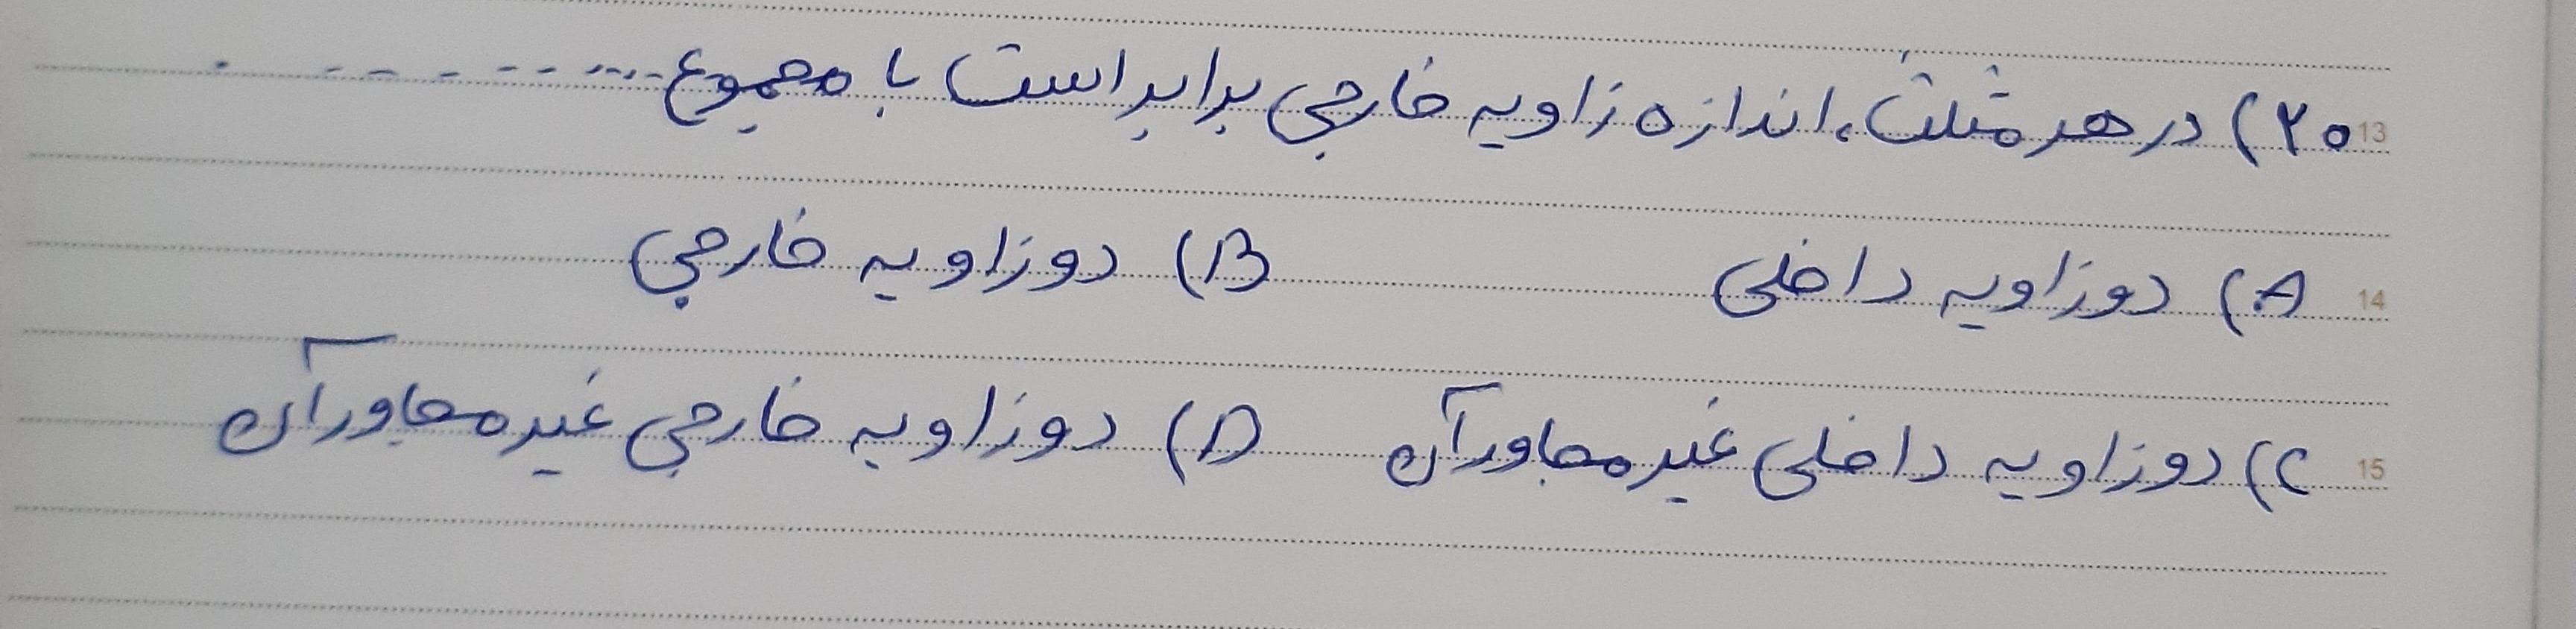 ۲۰) در هر مثلث، اندازه زاویه خارجی برابر است با مجموع .........
13
A) دو زاویه داخلی B) دو زاویه خارجی
14
C) دو زاویه داخلی غیر مجاور آن D) دو زاویه خارجی غیر مجاور آن
15